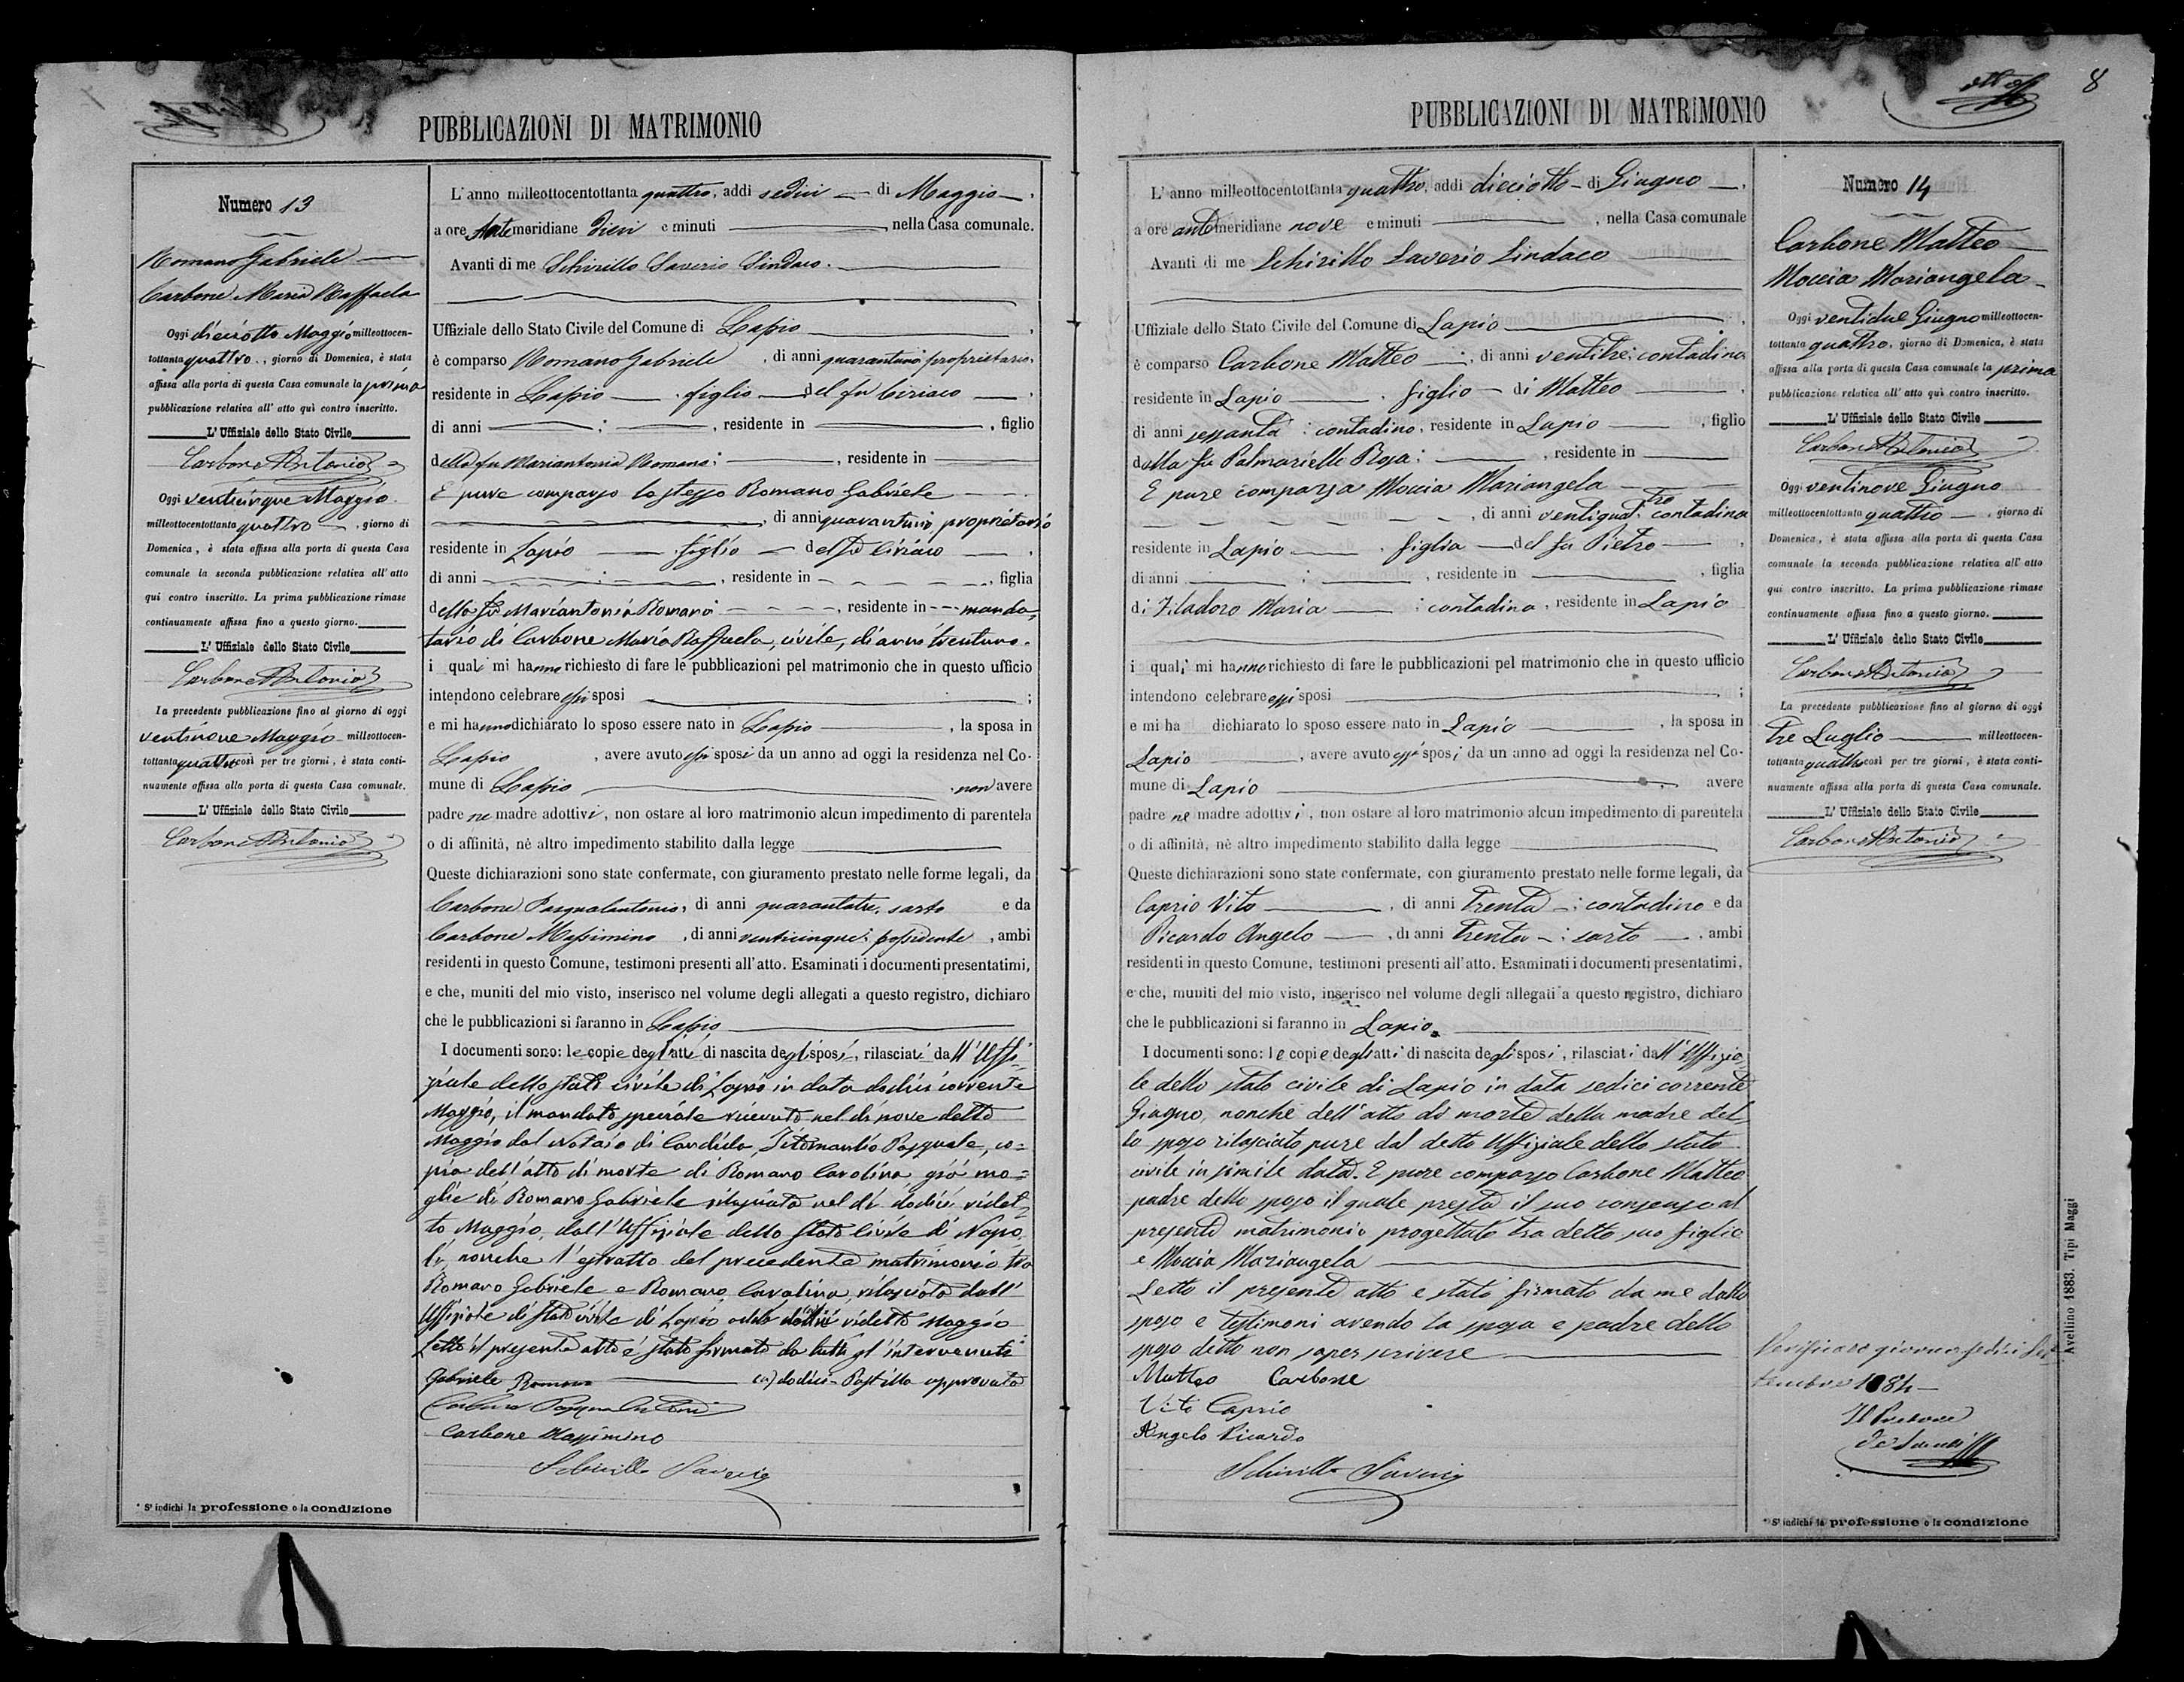 PUBBLICAZIONI DI MATRIMONIO
Numero 13
Romano Gabriele
Carbone Maria Raffaela
Oggi dieciotto Maggio milleottocen-
tottanta quattro, giorno di Domenica, è stata
affissa alla porta di questa Casa comunale la prima
pubblicazione relativa all' atto quì contro inscritto.
L' Uffiziale dello Stato Civile
Carbone Antonio
Oggi venticinque Maggio
milleottocentottanta quattro, giorno di
Domenica, è stata affissa alla porta di questa Casa
comunale la seconda pubblicazione relativa all' atto
qui contro inscritto. La prima pubblicazione rimase
continuamente affissa fino a questo giorno.
L' Uffiziale dello Stato Civile
Carbone Antonio
La precedente pubblicazione fino al giorno di oggi
ventinove Maggio milleottocen-
tottanta quattro così per tre giorni, è stata conti-
nuamente affissa alla porta di questa Casa comunale.
L' Uffiziale dello Stato Civile
Carbone Antonio
* Si indichi la professione o la condizione
L' anno milleottocentottanta quattro, addi sedici di Maggio,
a ore Antemeridiane dieci e minuti , nella Casa comunale.
Avanti di me Schirillo Saverio Sindaco.
Uffiziale dello Stato Civile del Comune di Lapio,
è comparso Romano Gabriele, di anni quarantuno proprietario,
residente in Lapio, figlio del fu Ciriaco,
di anni ; , residente in , figlio
della fu Mariantonia Romano; , residente in
E pure comparso lo stesso Romano Gabriele
, di anni quarantuno, proprietario
residente in Lapio, figlio del fu Ciriaco,
di anni ; , residente in , figlia
della fu Mariantonia Romano , residente in manda-
tario di Carbone Maria Raffaela, civile, di anni trentuno.
i quali mi hanno richiesto di fare le pubblicazioni pel matrimonio che in questo ufficio
intendono celebrare essi sposi ;
e mi hanno dichiarato lo sposo essere nato in Lapio, la sposa in
Lapio, avere avuto essi sposi da un anno ad oggi la residenza nel Co-
mune di Lapio, non avere
padre ne madre adottivi, non ostare al loro matrimonio alcun impedimento di parentela
o di affinità, nè altro impedimento stabilito dalla legge
Queste dichiarazioni sono state confermate, con giuramento prestato nelle forme legali, da
Carbone Pasqualantonio, di anni quarantatre, sarto e da
Carbone Massimino, di anni venticinque; possidente, ambi
residenti in questo Comune, testimoni presenti all'atto. Esaminati i documenti presentatimi,
e che, muniti del mio visto, inserisco nel volume degli allegati a questo registro, dichiaro
che le pubblicazioni si faranno in Lapio
I documenti sono: le copie degli atti di nascita degli sposi, rilasciati dall' Uffi-
ziale dello stato civile di Lapio in data dodici corrente
Maggio, il mandato speciale ricevuto nel dì nove detto
Maggio dal Notaio di Candida, Pasquale, co-
pia dell' atto di morte di Romano Carolina già mo-
glie di Romano Gabriele rilasciata nel dì dodici ridet-
to Maggio, dall' Uffiziale dello Stato Civile di Napo-
li, nonche l' estratto del precedente matrimonio tra
Romano Gabriele e Romano Carolina, rilasciato dall'
Uffiziale di Stato civile di Lapio addi ridetto Maggio
Letto il presente atto è stato firmato da tutti gl' intervenuti
Gabriele Romano (a) dodici - Postilla approvata
Carbone Pasqualantonio
Carbone Massimino
Schirillo Saverio
8
PUBBLICAZIONI DI MATRIMONIO
L' anno milleottocentottanta quattro, addi dieciotto di Giugno,
a ore antimeridiane nove e minuti , nella Casa comunale
Avanti di me Schirillo Saverio Sindaco
Uffiziale dello Stato Civile del Comune di Lapio,
è comparso Carbone Matteo, di anni ventitre; contadino
residente in Lapio, figlio di Matteo,
di anni sessanta; contadino, residente in Lapio, figlio
della fu Palmarielli Rosa; , residente in
E pure comparsa Moccia Mariangela
, di anni ventiquattro contadina
residente in Lapio, figlia del fu Pietro,
di anni ; , residente in , figlia
di Filadoro Maria; contadina, residente in Lapio
i quali mi hanno richiesto di fare le pubblicazioni pel matrimonio che in questo ufficio
intendono celebrare essi sposi ;
e mi ha dichiarato lo sposo essere nato in Lapio, la sposa in
Lapio, avere avuto essi sposi da un anno ad oggi la residenza nel Co-
mune di Lapio, avere
padre nè madre adottivi, non ostare al loro matrimonio alcun impedimento di parentela
o di affinità, nè altro impedimento stabilito dalla legge
Queste dichiarazioni sono state confermate, con giuramento prestato nelle forme legali, da
Caprio Vito, di anni trenta; contadino e da
Picardo Angelo, di anni trenta; sarto, ambi
residenti in questo Comune, testimoni presenti all'atto. Esaminati i documenti presentatimi,
e che, muniti del mio visto, inserisco nel volume degli allegati a questo registro, dichiaro
che le pubblicazioni si faranno in Lapio.
I documenti sono: le copie degli atti di nascita degli sposi, rilasciati dall' Uffizia-
le dello stato civile di Lapio in data sedici corrente
Giugno, nonchè dell' atto di morte della madre del-
lo sposo rilasciato pure dal detto Uffiziale dello stato
civile in simile data. E pure comparso Carbone Matteo
padre dello sposo il quale presta il suo consenso al
presente matrimonio progettato tra detto suo figlio
e Moccia Mariangela
Letto il presente atto e stato firmato da me dallo
sposo e testimoni avendo la sposa e padre dello
sposo detto non saper scrivere
Matteo Carbone
Vito Caprio
Angelo Picardo
Schirillo Saverio
Numero 14
Carbone Matteo
Moccia Mariangela
Oggi ventidue Giugno milleottocen-
tottanta quattro, giorno di Domenica, è stata
affissa alla porta di questa Casa comunale la prima
pubblicazione relativa all' atto quì contro inscritto.
L' Uffiziale dello Stato Civile
Carbone Antonio
Oggi ventinove Giugno
milleottocentottanta quattro, giorno di
Domenica, è stata affissa alla porta di questa Casa
comunale la seconda pubblicazione relativa all' atto
qui contro inscritto. La prima pubblicazione rimase
continuamente affissa fino a questo giorno.
L' Uffiziale dello Stato Civile
Carbone Antonio
La precedente pubblicazione fino al giorno di oggi
tre Luglio milleottocen-
tottanta quattro così per tre giorni, è stata conti-
nuamente affissa alla porta di questa Casa comunale.
L' Uffiziale dello Stato Civile
Carbone Antonio
giorno sedici Set-
tembre 1884
Il Pretore
* Si indichi la professione o la condizione
Avellino 1883. Tipi Maggi